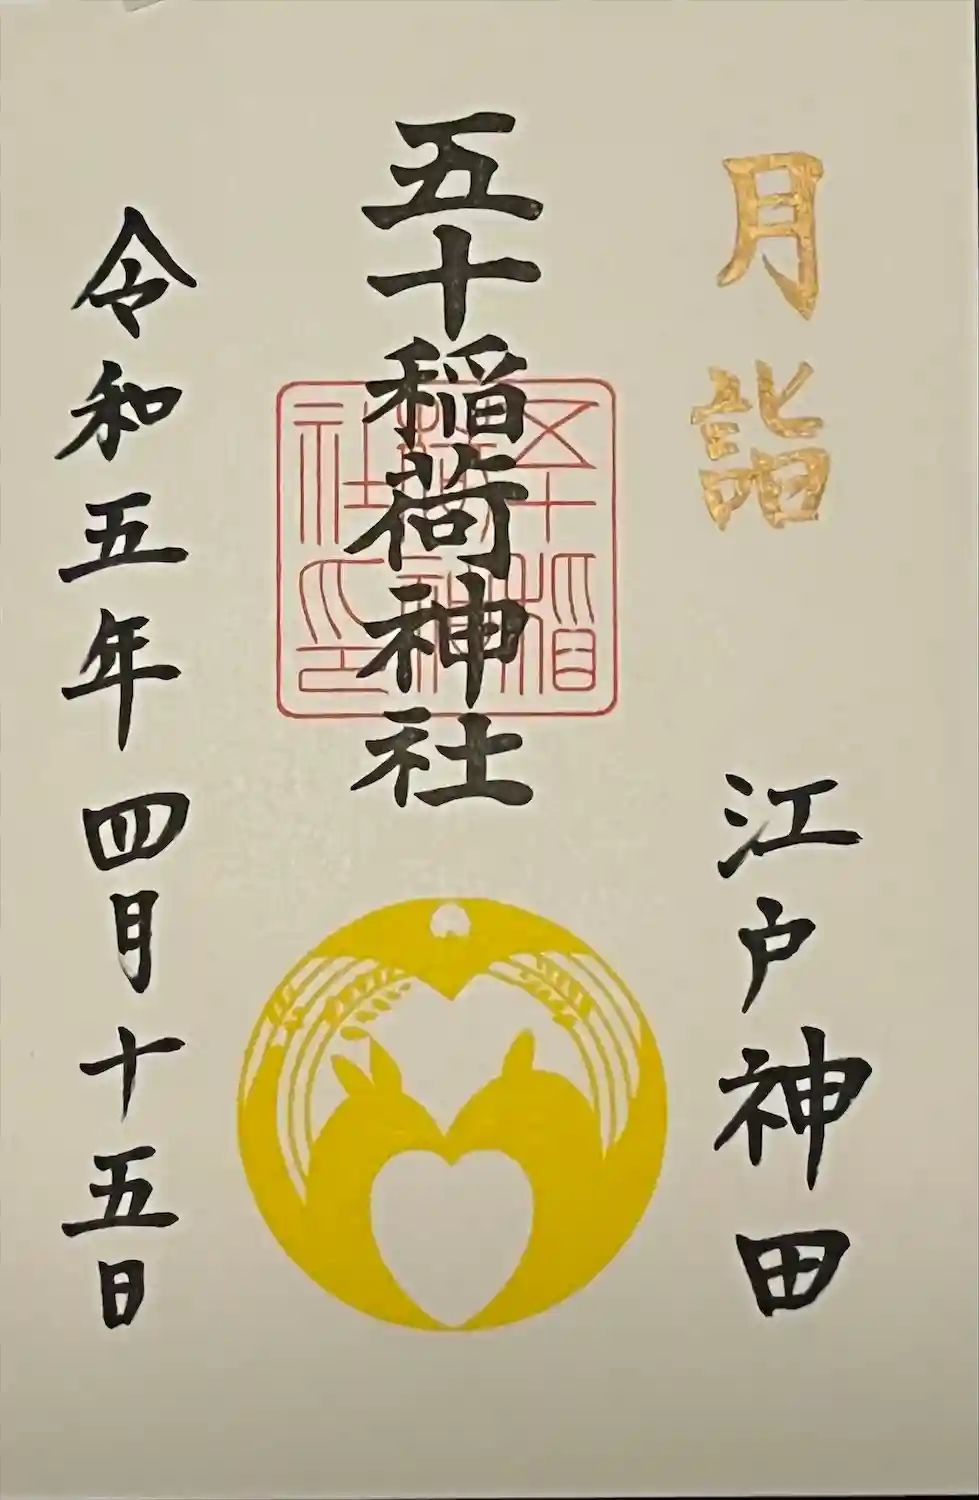 月詣
江戸神田
五十稲荷神社
五十稲
荷神
社印
令和五年四月十五日